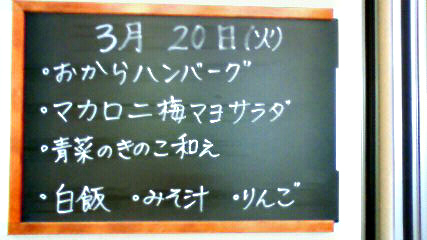 3月 20日(火)
・おからハンバーグ
・マカロニ梅マヨサラダ
・青菜のきのこ和え
・白飯 ・みそ汁 ・りんご